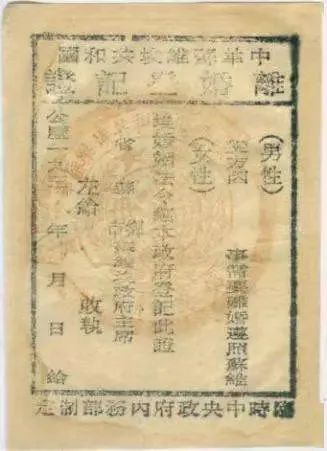 中華蘇維埃共和國
離婚登記證
(男性)
事需要離婚遵照蘇維
(女性)
埃婚姻法令經本政府登記此證
省 縣 鄉市蘇維埃政府主席
右給 收執
公曆一九三 年 月 日給
臨時中央政府內務部制定